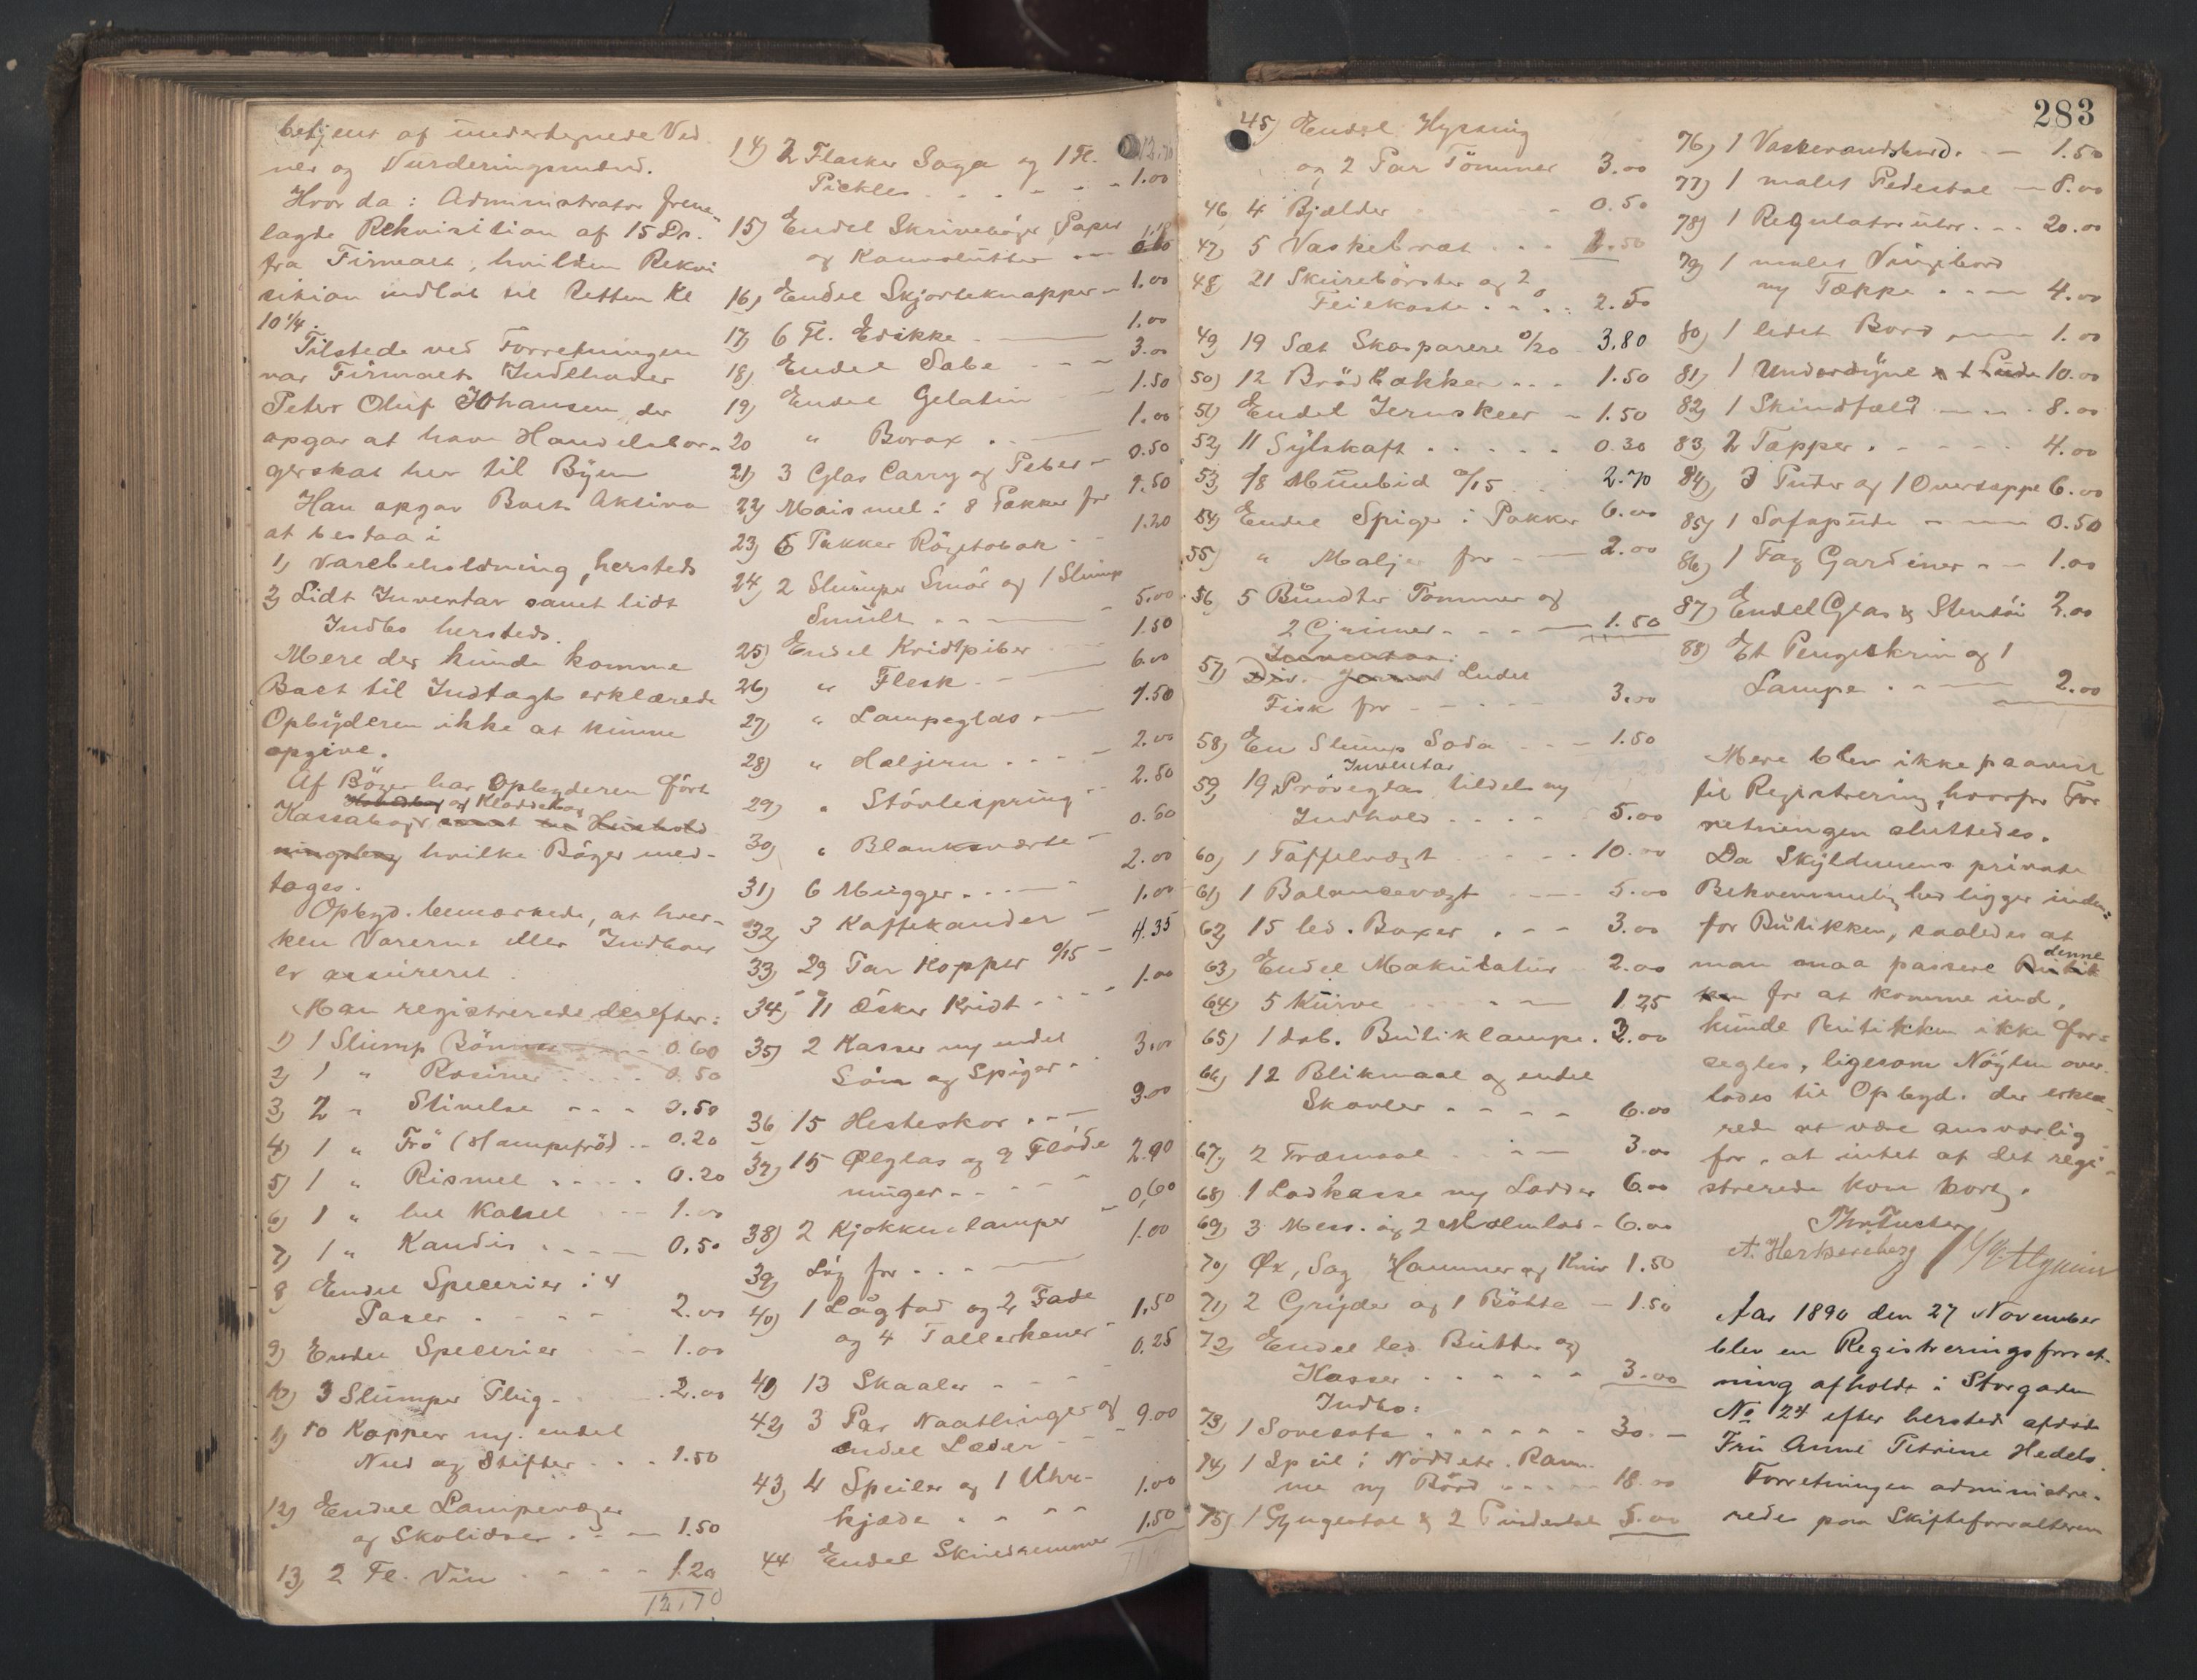 betjent af undertegnede Vid
ner og Vurderingsmænd.
Hvor da: Administrator frem-
lagde Rekvisition af 15 Ds.
fra Firmaet, hvilken Rekvi
sition indlob til Retten Kl
10 1/4.
Tilstede ved Forretningen
var Firmaets Indehaver
Peter Oluf Johansen, der
opgav at have Handelsbor-
gerskab her til Byen
Han opgav Boets Aktiva
at bestaa i
1) Varebeholdning, hersteds
2) Lidt Inventar samt lidt
Indbo hersteds.
Mere der kunde komme
Boet til Indtægt erklærede
Opbyderen ikke at kunne
opgive.
Af Bøger har Opbyderen ført
og Kladdebog
Kassabog samt en Hushold
ningsbog hvilke Bøger med-
tages.
Opbyd. bemærkede, at hver-
ken Varerne eller Indboet
er assureret.
Man registrerede derefter:
1) 1 Slump Bönner 0.60
2) 1 " Rosiner 0.50
3) 2 " Stivelse 0.50
4) 1 " Frö (Hampefrö) 0.20
5) 1 " Rismel 0.20
6) 1 " hel Kanel 1.00
7) 1 " Kandis 0.50
8 Endel Specerier i 4
Poser 2.00
9) Endel Specerier 1.00
10) 3 Slumper Thig 2.00
11) 10 Kopper m. endel
Nud og Stifter 1.50
12) Endel Lampevæger
og Skolidser 1.50
13) 2 Fl. Vin 1.20
12.70
12.70
14) 2 Flasker Soya og 1 Fl.
Pickles 1.00
15) Endel Skrivebøger, Papir
og Konvolutter
16) Endel Skjorteknapper 1.00
17) 6 Fl. Edikke 1.00
18) Endel Sæbe 3.00
19) Endel Gelatin 1.50
20 " Borax 1.00
21) 3 Glas Carry og Peber 0.50
22) Maismel i 8 Pakker for 1.50
23) 6 Pakker Røgetobak 1.20
24) 2 Slumper Smør og 1 Slump
Smult 5.00
25) Endel Kridtpiber 1.50
26) " Flesk 6.00
27) " Lampeglas 1.50
28) " Hæljern 2.00
29) " Stövlespring 2.50
30) " Blanksværte 0.60
31) 6 Mugger 2.00
32) 3 Kaffekander 1.00
33) 29 Par Kopper a/15 4.35
34) 11 Æsker Kridt 1.00
35) 2 Kasser m endel
Söm og Spiger 3.00
36 15 Hestesko 9.00
37) 15 Ølglas og 2 Fløde
muger 2.90
38) 2 Kjøkkenlamper 0,60
39) Løg for 1.00
40) 1 Laagfad og 2 Fade
og 4 Tallerkener 1,50
41) 13 Skaaler 0.25
42) 3 Par Naatlinger og
endel Læder 9.00
43) 4 Speiler og 1 Uhr-
kjæde 1.00
44 Endel Skindremmer 1.50
283
45) Endel Hyssing
og 2 Par Tömmer 3.00
46 4 Bjælder 0.50
47) 5 Vaskebræt 1.50
48 21 Skurebörster og 2
Feiekoste 2.50
49) 19 Sæt Skosparere a/20 3.80
50) 12 Brödbakker 1.50
51) Endel Jernskeer 1.50
52) 11 Sylskaft 0.30
53) 18 Mundbid a/15 2.70
54) Endel Spiger i Pakker 6.00
55) " Maljer for 2.00
56) 5 Bundter Tommer og
2 Grimer 1.50
Inventar:
57) Div. Endel
Fisk for 3.00
58) En Slump Soda 1.50
Inventar
59) 19 Pröveglas tildels m
Indhold 5.00
60) 1 Taffelvægt 10.00
61) 1 Balancevægt 5.00
62) 15 led. Boxer 3.00
63) Endel Makulatur 2.00
64) 5 Kurve 1.25
65) 1 dob. Butiklampe 3.00
66) 12 Blikmaal og endel
Skovler 6.00
67) 2 Træmaal 3.00
68) 1 Lodkasse m Lodder 6.00
69) 3 Mess. og 2 Malmlod 6.00
70) Øx, Sag Hammer og Kniv 1.50
71) 2 Gryder og 1 Bötte 1.50
72) Endel led. Butter og
Kasser 3.00
Indbo:
73) 1 Sovesofa 30.—
74) 1 Speil i Nödetr. Ram-
me m Bord 18.00
75) 1 Gyngestol & 2 Pindestole 5.00
76) 1 Vaskevandsbord 1.50
77) 1 malet Pedestal 8.00
78) 1 Regulatorutr 20.00
79) 1 malet Vingebord
m Tæppe 4.00
80) 1 ledet Bord 1.00
81) 1 Underdyne & 1 Pude 10.00
82) 1 Skindfæld 8.00
83) 2 Tæpper 4.00
84) 3 Puder og 1 Overtæppe 6.00
85) 1 Sofapude 0.50
86) 1 Fag Gardiner 1.00
87) Endel Glas & Stentöi 2.00
88) Et Pengeskrin og 1
Lampe 2.00
Mere blev ikke paavist
til Registrering, hvorfor For
retningen sluttedes.
Da Skyldnerens private
Bekvemmelighed ligger inden-
for Butikken, saaledes at
denne
man maa passere Butik
ken for at komme ind,
kunde Butikken ikke for-
segles, ligesom Nöglen over-
lodes til Opbyd. der erklæ-
rede at være ansvarlig
for, at intet af det regi-
strerede kom bort.
A. Hertzenberg
Aar 1890 den 27 November
blev en Registreringsforret-
ning afholdt i Storgaden
No 24 efter hersted afdøde
Fru Anne Petrine Hedels.
Forretningen administre-
redes paa Skifteforvalteren